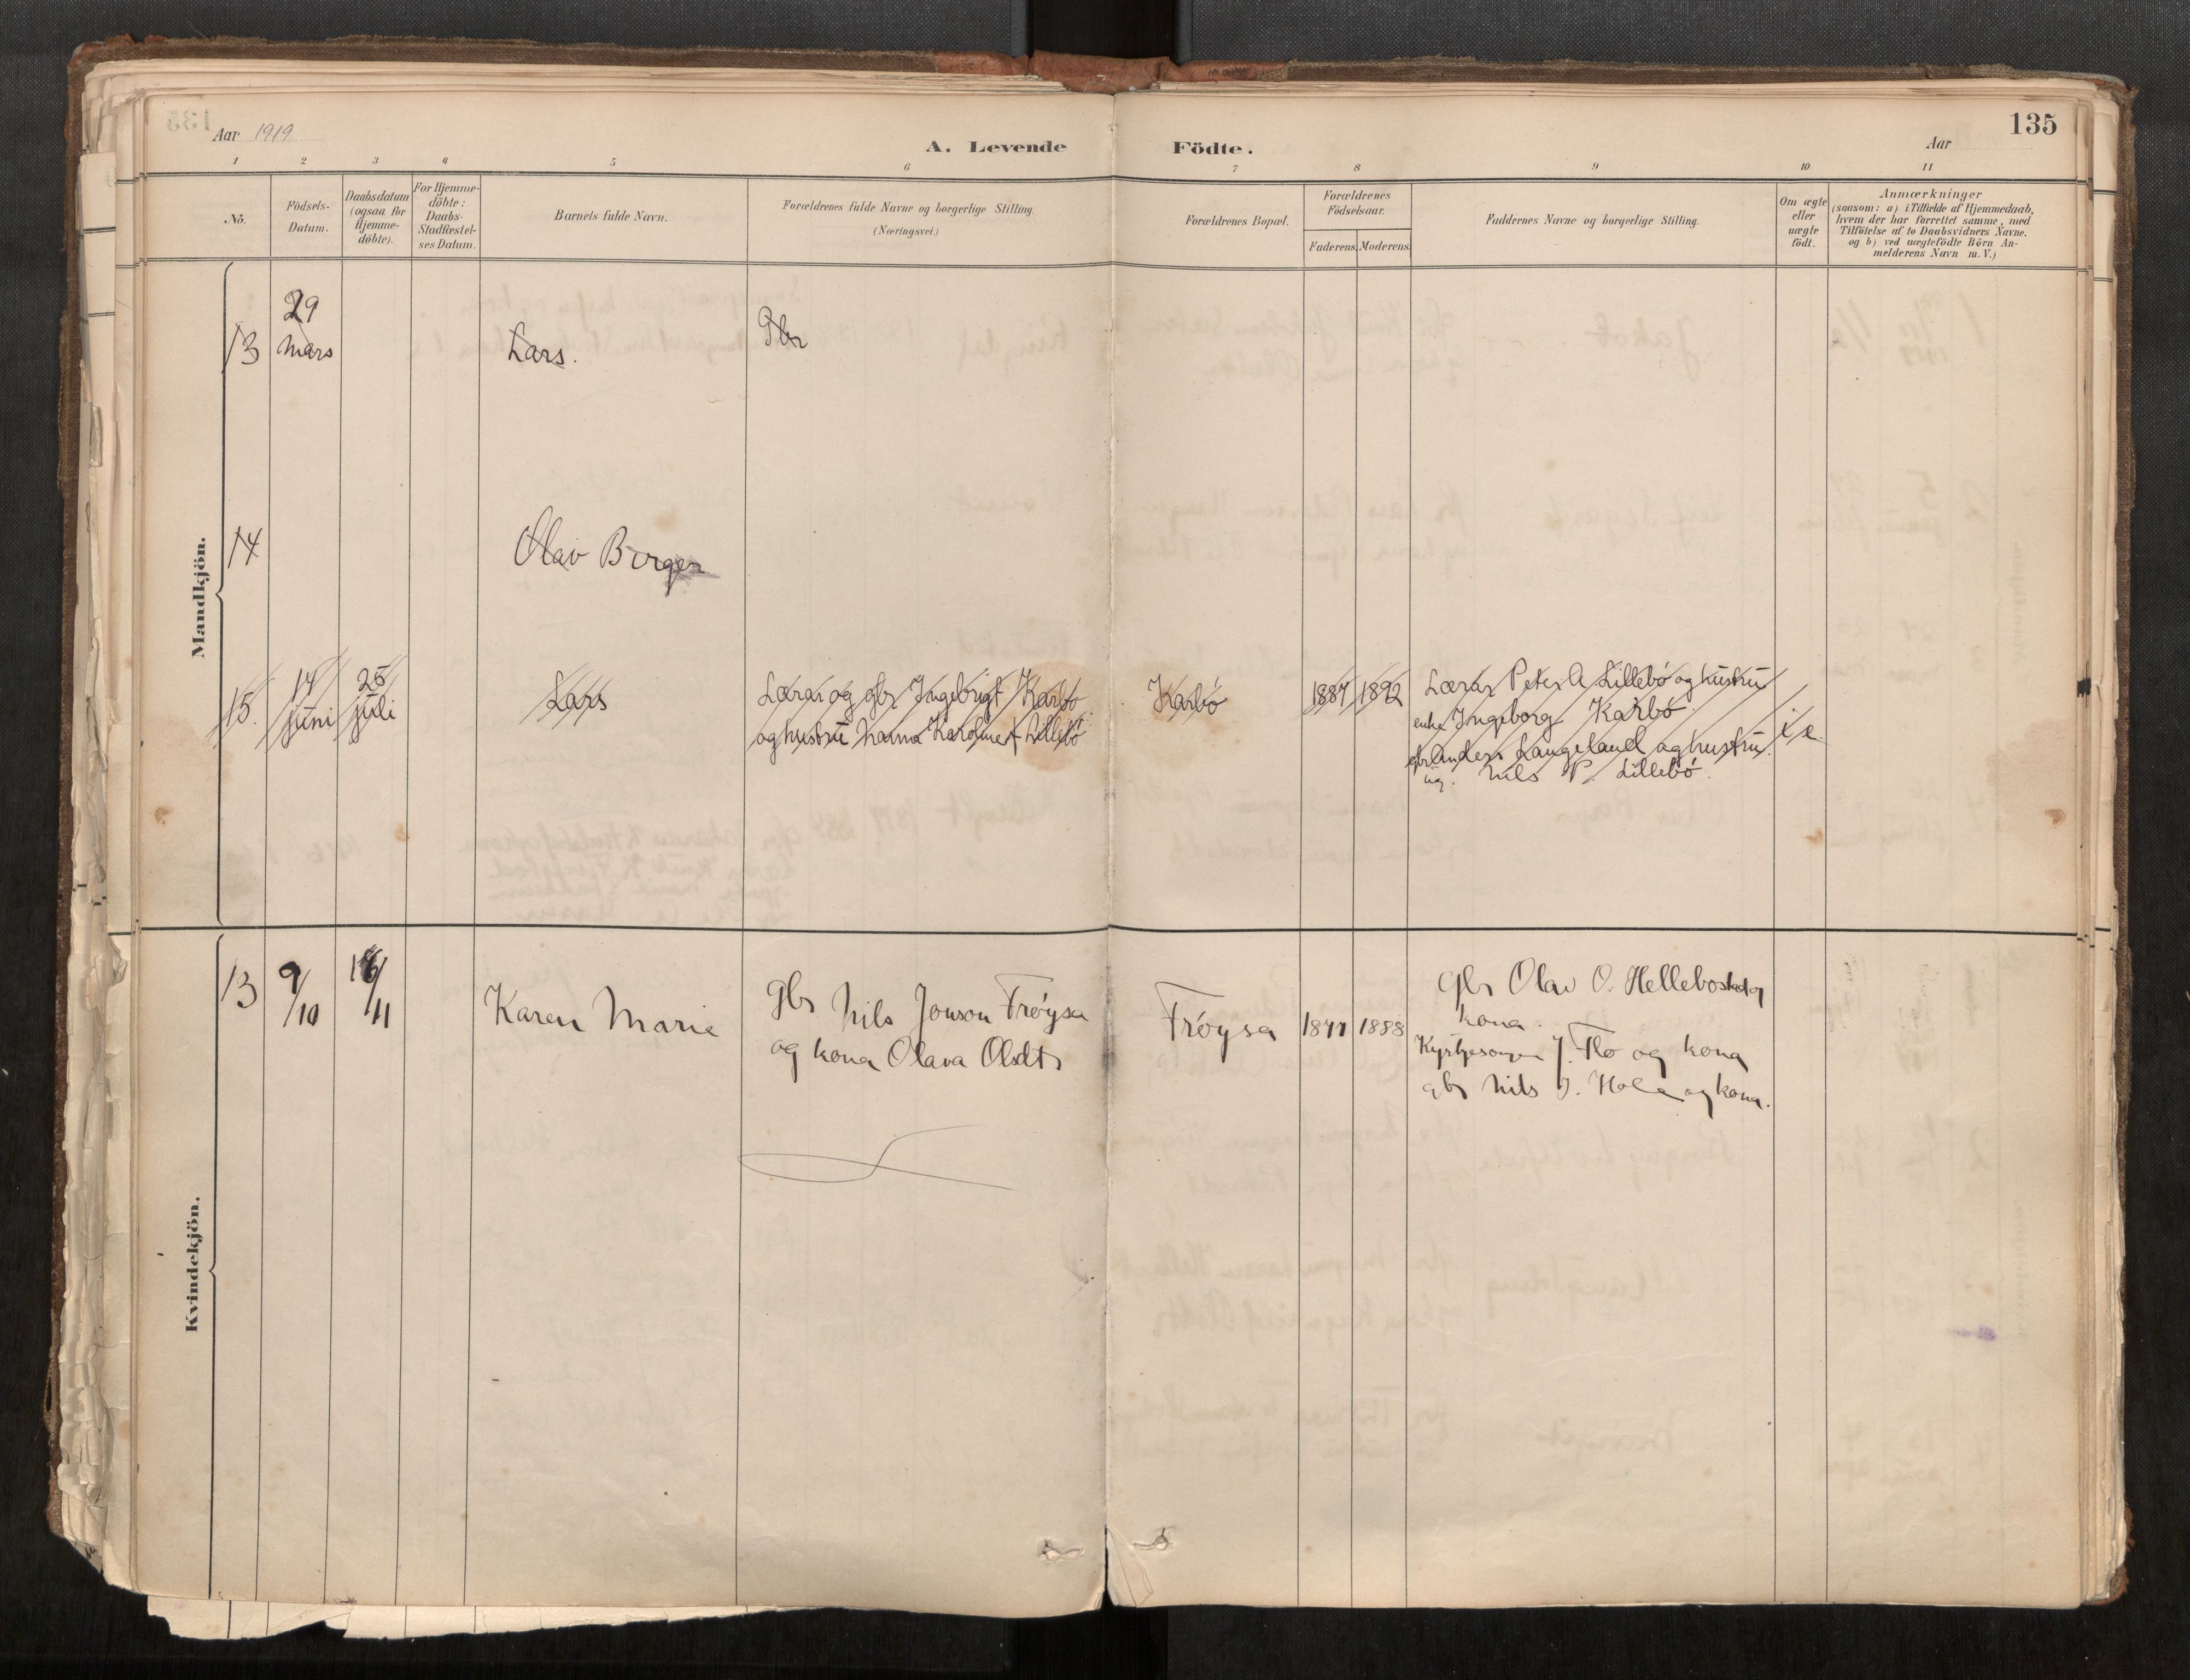 Aar 1919
A. Levende Födte.
Aar
135
1 2 3 4 5 6 7 8 9 10 11
No.
Födsels-Datum.
Daabsdatum (ogsaa for Hjemme-döbte).
For Hjemme-döbte: Daabs-Stadfæstel-ses Datum.
Barnets fulde Navn.
Forældrenes fulde Navne og borgerlige Stilling.
(Næringsvei.)
Forældrenes Bopæl.
Forældrenes Födselsaar.
Faderens. Moderens.
Faddernes Navne og borgerlige Stilling.
Om ægte eller uægte födt.
Anmærkninger
(saasom: a) i Tilfælde af Hjemmedaab,
hvem der har forrettet samme, med
Tilföielse af to Daabsvidners Navne,
og b) ved uægtefödte Börn An-
melderens Navn m. V.)
Mandkjön.
13 29 mars Lars. Gbr
14 Olav Birger
15. 14 juni 25 juli Lars
Lærar og gbr Ingebrigt Karbö
og hustru Nanna Karoline f. Lillebö
Karbö 1887 1892
Lærar Peter A Lillebö og hustru
enke Ingeborg Karbö
gbr Anders Langeland og hustru.
ug. Nils P. Lillebö.
Kvindekjön.
13 9/10 16/11 Karen Marie
gbr Nils Jonson Fröysa
og kona Olava Olsdtr
Fröysa 1877 1888
Gbr Olav O. Hellebostad og
kona.
Kyrkjesongar J. Flo og kona
gbr Nils J. Hole og kona.